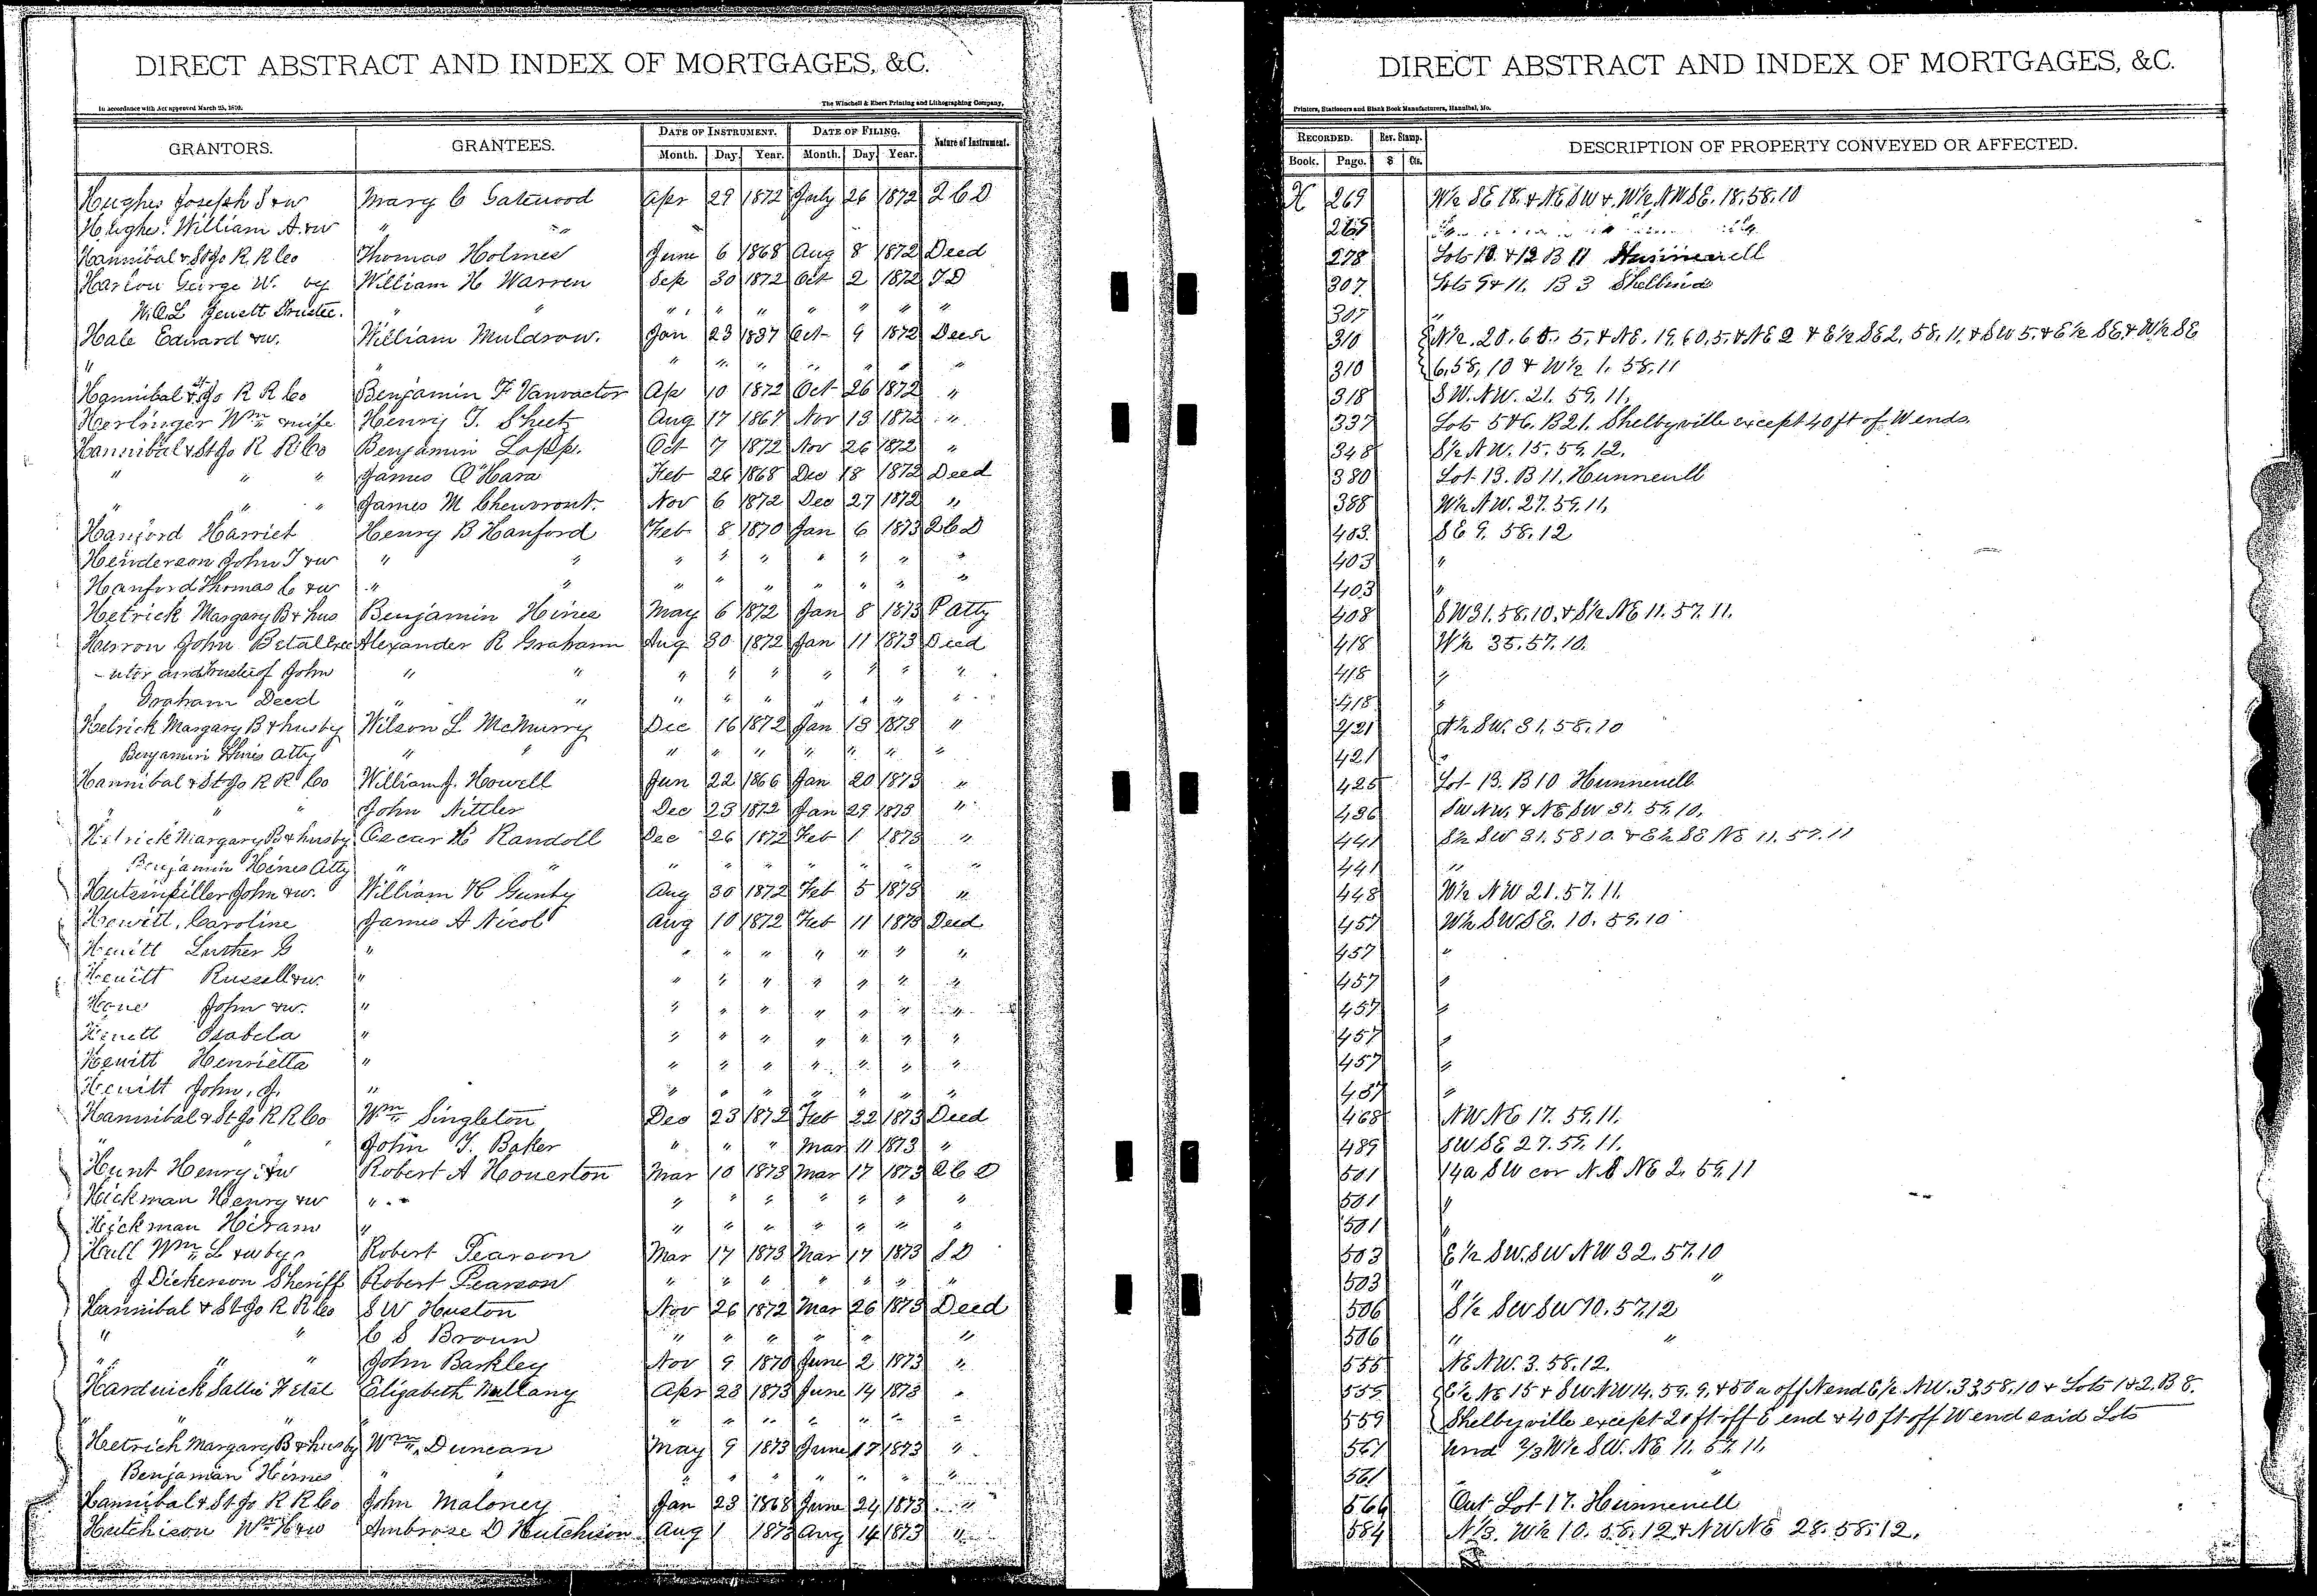 DIRECT ABSTRACT AND INDEX OF MORTGAGES, &C.
In accordance with Act approved March 25, 1870.
The Winchell & Ebert Printing and Lithographing Company,
GRANTORS. GRANTEES. DATE OF INSTRUMENT. DATE OF FILING. Nature of Instrument.
Month. Day. Year. Month. Day. Year.
Hughes Joseph S &w Mary C Gatewood Apr 29 1872 July 26 1872 2 C D
Hughes William A. &w " "
Hannibal & St Jo R R Co Thomas Holmes June 6 1868 Aug 8 1872 Deed
Harlow George W. by William H Warren Sep 30 1872 Oct 2 1872 T D
W.O.L. Jewett Trustee. " " " " " " " " "
Hale Edward &w. William Muldrow. Jan 23 1837 Oct 9 1872 Deed
" " " " " " " " "
Hannibal & St Jo R R Co Benjamin F Vanvactor Ap 10 1872 Oct 26 1872 "
Herlinger Wm & wife Henry T. Sheetz Aug 17 1867 Nov 13 1872 "
Hannibal & St Jo R R Co Benjamin Lapp. Oct 7 1872 Nov 26 1872 "
" " " James O'Hara Feb 26 1868 Dec 18 1872 Deed
" " " James M Cheuvront. Nov 6 1872 Dec 27 1872 "
Hanford Harriet Henry B Hanford Feb 8 1870 Jan 6 1873 2 C D
Henderson John T &w " " " " " " " " "
Hanford Thomas C &w " " " " " " " " "
Hetrick Margary B & hus Benjamin Hines May 6 1872 Jan 8 1873 P Atty
Herron John Betal Exec Alexander R Graham Aug 30 1872 Jan 11 1873 Deed
-utor and Trustee of John " " " " " " " " "
Graham Deed " " " " " " " " "
Hetrick Margary B & hus by Wilson L McMurry Dec 16 1872 Jan 13 1873 "
Benjamin Hines Atty " " " " " " " " "
Hannibal & St Jo R R Co William J. Howell Jun 22 1866 Jan 20 1873 "
" " John Nittler Dec 23 1872 Jan 29 1873 "
Hetrick Margary B & hus by Oscar H Randoll Dec 26 1872 Feb 1 1873 "
Benjamin Hines Atty " " " " " " " " "
Hutsinpiller John &w. William H Gunby Aug 30 1872 Feb 5 1873 "
Hewitt, Caroline James A Nicol Aug 10 1872 Feb 11 1873 Deed
Hewitt Luther G " " " " " " " "
Hewitt Russell &w. " " " " " " " "
John &w. " " " " " " " "
Isabela " " " " " " " "
Hewitt Henrietta " " " " " " " "
Hewitt John, J. " " " " " " " "
Hannibal & St Jo R R Co Wm Singleton Dec 23 1872 Feb 22 1873 Deed
" " John T. Baker " " " Mar 11 1873 "
Hunt Henry &w Robert A Howerton Mar 10 1873 Mar 17 1873 2 C D
Hickman Henry &w " " " " " " " "
Hickman Hiram " " " " " " " "
Hall Wm L &w by Robert Pearson Mar 17 1873 Mar 17 1873 S D
J Dickerson Sheriff Robert Pearson " " " " " " "
Hannibal & St Jo R R Co S W Huston Nov 26 1872 Mar 26 1873 Deed
" " C S Brown " " " " " " "
" " " John Barkley Nov 9 1870 June 2 1873 "
Hardwick Sallie F et al Elizabeth Mullany Apr 23 1873 June 14 1873 "
" " " " " " " " "
Hetrich Margary B & hus by Wm Duncan May 9 1873 June 17 1873 "
Benjaman Himes " " " " " " " " "
Hannibal & St Jo R R Co John Maloney Jan 23 1868 June 24 1873 "
Hutchison Wm H &w Ambrose D Hutchison Aug 1 1873 Aug 14 1873 "
DIRECT ABSTRACT AND INDEX OF MORTGAGES, &C.
Printers, Stationers and Blank Book Manufacturers, Hannibal, Mo.
RECORDED. Rev. Stamp. DESCRIPTION OF PROPERTY CONVEYED OR AFFECTED.
Book. Page. $ Cts.
H 269 W½ SE 18. & NE SW & W½ NW SE. 18. 58. 10
269
278 Lots 10 & 12 B 11 Hunnewell
307 Lots 9 & 11. B 3 Shelbina
307 "
310 N½. 20. 60. 5. & NE. 19. 60. 5. & NE 2 & E½ SE 2. 58. 11. & SW 5. & E½ SE & W½ SE
310 6. 58. 10 & W½ 1. 58. 11
318 SW. NW. 21. 59. 11.
337 Lots 5 & 6. B 21. Shelbyville except 40 ft of W ends.
348 S½ NW. 15. 59. 12.
380 Lot 13. B 11. Hunnewell
388 W½ NW. 27. 59. 11.
403 SE 9. 58. 12
403 "
403 "
408 SW 31. 58. 10. & S½ NE 11. 57. 11.
418 W½ 35. 57. 10.
418 "
418 "
421 N½ SW. 31. 58. 10
421 "
425 Lot 13. B 10 Hunnewell
436 SW NW. & NE SW 31. 59. 10.
441 S½ SW 31. 58 10. & E½ SE NE 11. 57. 11
441 "
448 W½ NW 21. 57. 11.
457 W½ SW SE. 10. 59. 10
457 "
457 "
457 "
457 "
457 "
457 "
468 NW NE 17. 59. 11.
489 SW SE 27. 59. 11.
501 14a SW cor NE NE 2. 59. 11
501 "
501 "
503 E½ SW. SW NW 32. 57. 10
503 " "
506 S½ SW SW 10. 57. 12
506 " "
555 NE NW. 3. 58. 12.
559 E½ NE 15 & SW. NW 14. 59. 9. & 50 a off N end E½ NW. 33 58. 10 & Lots 1 & 2. B 8.
559 Shelbyville except 20 ft off E end & 40 ft off W end said Lots
561 und ⅔ W½ SW. NE 11. 57. 11.
561 "
566 Out Lot 17. Hunnewell
584 N⅓. W½ 10. 58. 12 & NW NE 28. 58. 12.